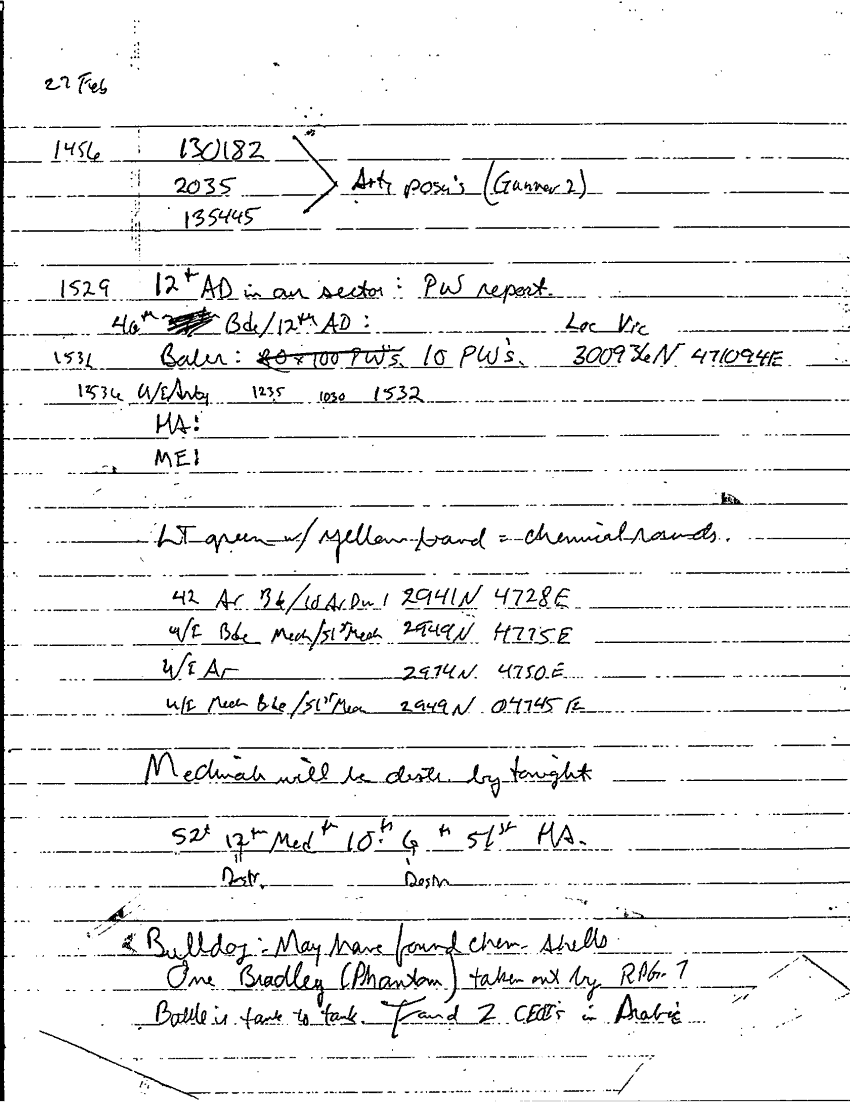 27 Feb
1456 130182
2035 Arty posn's (Gunner 2)
135445
1529 12th AD in our sector: PW report.
46th Bde/12th AD: Loc Vic
1531 Baler: 80 x 100 PW's. 10 PW's. 300936N 471094E
1536 U/I Arty 1235 1030 1532
HA:
ME:
LT green w/ yellow band = chemical rounds.
42 Ar Bde/10 Ar Div 2941N 4728E
U/I Bde Mech/51st Mech 2949N 4775E
U/I Ar 2974N 4750E
U/I Mech Bde/51st Mech 2949N 04745E
Medinah will be destr. by tonight
52d 12th Med 10th 51st HA.
Destr. Destr
Bulldog: May have found chem. shells
One Bradley (Phantom) taken out by RPG-7
Battle is tank to tank. Found 2 in Arabic